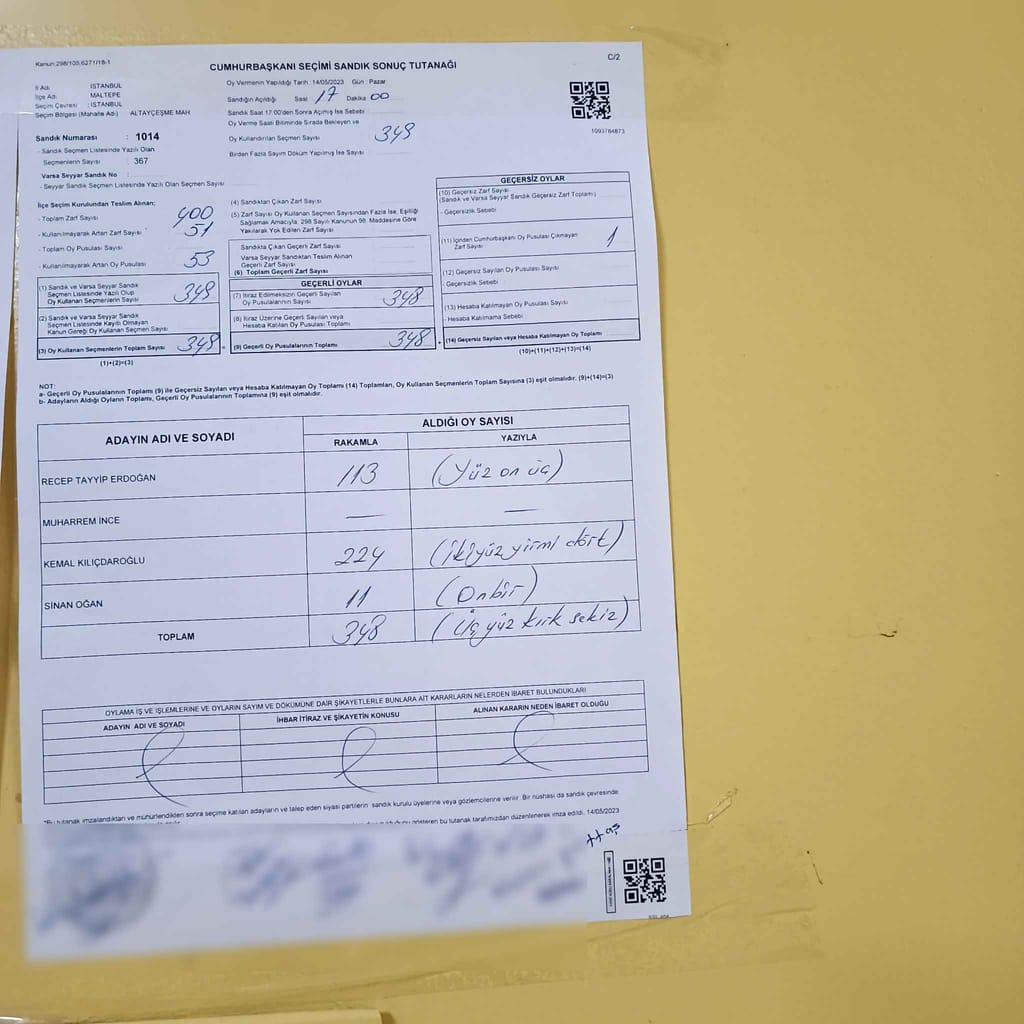 Kanun:298/105,6271/18-1
C/2
CUMHURBAŞKANI SEÇİMİ SANDIK SONUÇ TUTANAĞI
İl Adı : İSTANBUL
İlçe Adı : MALTEPE
Seçim Çevresi : İSTANBUL
Seçim Bölgesi (Mahalle Adı) : ALTAYÇEŞME MAH
Sandık Numarası : 1014
- Sandık Seçmen Listesinde Yazılı Olan
Seçmenlerin Sayısı : 367
Varsa Seyyar Sandık No :
- Seyyar Sandık Seçmen Listesinde Yazılı Olan Seçmen Sayısı
Oy Vermenin Yapıldığı Tarih : 14/05/2023 Gün : Pazar
Sandığın Açıldığı Saat 17 Dakika 00
Sandık Saat 17:00'den Sonra Açılmış İse Sebebi
Oy Verme Saati Bitiminde Sırada Bekleyen ve
Oy Kullandırılan Seçmen Sayısı 348
Birden Fazla Sayım Döküm Yapılmış İse Sayısı
1093784873
İlçe Seçim Kurulundan Teslim Alınan;
- Toplam Zarf Sayısı 400
- Kullanılmayarak Artan Zarf Sayısı 51
- Toplam Oy Pusulası Sayısı
- Kullanılmayarak Artan Oy Pusulası 53
(1) Sandık ve Varsa Seyyar Sandık
Seçmen Listesinde Yazılı Olup
Oy Kullanan Seçmenlerin Sayısı 348
(2) Sandık ve Varsa Seyyar Sandık
Seçmen Listesinde Kayıtlı Olmayan
Kanun Gereği Oy Kullanan Seçmen Sayısı
(3) Oy Kullanan Seçmenlerin Toplam Sayısı 348
(1)+(2)=(3)
(4) Sandıktan Çıkan Zarf Sayısı
(5) Zarf Sayısı Oy Kullanan Seçmen Sayısından Fazla İse, Eşitliği
Sağlamak Amacıyla, 298 Sayılı Kanunun 98. Maddesine Göre
Yakılarak Yok Edilen Zarf Sayısı
Sandıkta Çıkan Geçerli Zarf Sayısı
Varsa Seyyar Sandıktan Teslim Alınan
Geçerli Zarf Sayısı
(6) Toplam Geçerli Zarf Sayısı
GEÇERLİ OYLAR
(7) İtiraz Edilmeksizin Geçerli Sayılan
Oy Pusulalarının Sayısı 348
(8) İtiraz Üzerine Geçerli Sayılan veya
Hesaba Katılan Oy Pusulası Toplamı
(9) Geçerli Oy Pusulalarının Toplamı 348
GEÇERSİZ OYLAR
(10) Geçersiz Zarf Sayısı
(Sandık ve Varsa Seyyar Sandık Geçersiz Zarf Toplamı)
- Geçersizlik Sebebi
(11) İçinden Cumhurbaşkanı Oy Pusulası Çıkmayan
Zarf Sayısı 1
(12) Geçersiz Sayılan Oy Pusulası Sayısı
- Geçersizlik Sebebi
(13) Hesaba Katılmayan Oy Pusulası Sayısı
- Hesaba Katılmama Sebebi
(14) Geçersiz Sayılan veya Hesaba Katılmayan Oy Toplamı
(10)+(11)+(12)+(13)=(14)
NOT:
a- Geçerli Oy Pusulalarının Toplamı (9) ile Geçersiz Sayılan veya Hesaba Katılmayan Oy Toplamı (14) Toplamları, Oy Kullanan Seçmenlerin Toplam Sayısına (3) eşit olmalıdır. (9)+(14)=(3)
b- Adayların Aldığı Oyların Toplamı, Geçerli Oy Pusulalarının Toplamına (9) eşit olmalıdır.
ADAYIN ADI VE SOYADI
ALDIĞI OY SAYISI
RAKAMLA YAZIYLA
RECEP TAYYİP ERDOĞAN 113 (Yüz on üç)
MUHARREM İNCE — —
KEMAL KILIÇDAROĞLU 224 (ikiyüz yirmi dört)
SİNAN OĞAN 11 (Onbir)
TOPLAM 348 (üçyüz kırk sekiz)
OYLAMA İŞ VE İŞLEMLERİNE VE OYLARIN SAYIM VE DÖKÜMÜNE DAİR ŞİKAYETLERLE BUNLARA AİT KARARLARIN NELERDEN İBARET BULUNDUKLARI
ADAYIN ADI VE SOYADI İHBAR İTİRAZ VE ŞİKAYETİN KONUSU ALINAN KARARIN NEDEN İBARET OLDUĞU
"Bu tutanak imzalandıktan ve mühürlendikten sonra seçime katılan adayların ve talep eden siyasi partilerin sandık kurulu üyelerine veya gözlemcilerine verilir. Bir nüshası da sandık çevresinde
gösteren bu tutanak tarafımızdan düzenlenerek imza edildi. 14/05/2023